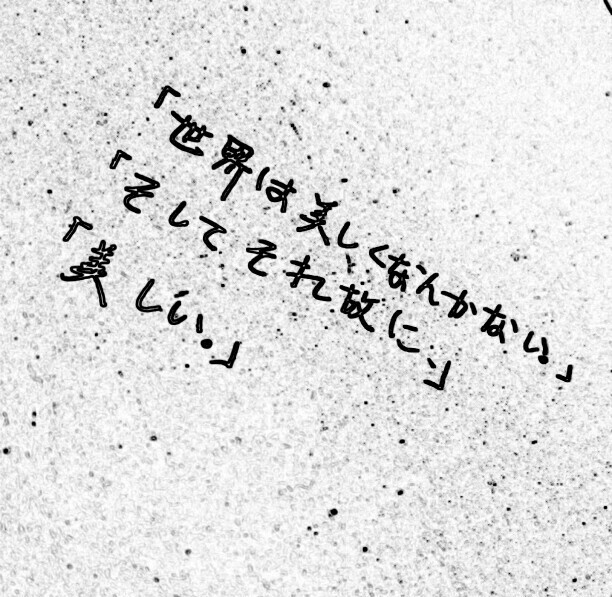 「世界は美しくなんかない。」
「そしてそれ故に」
「美しい。」